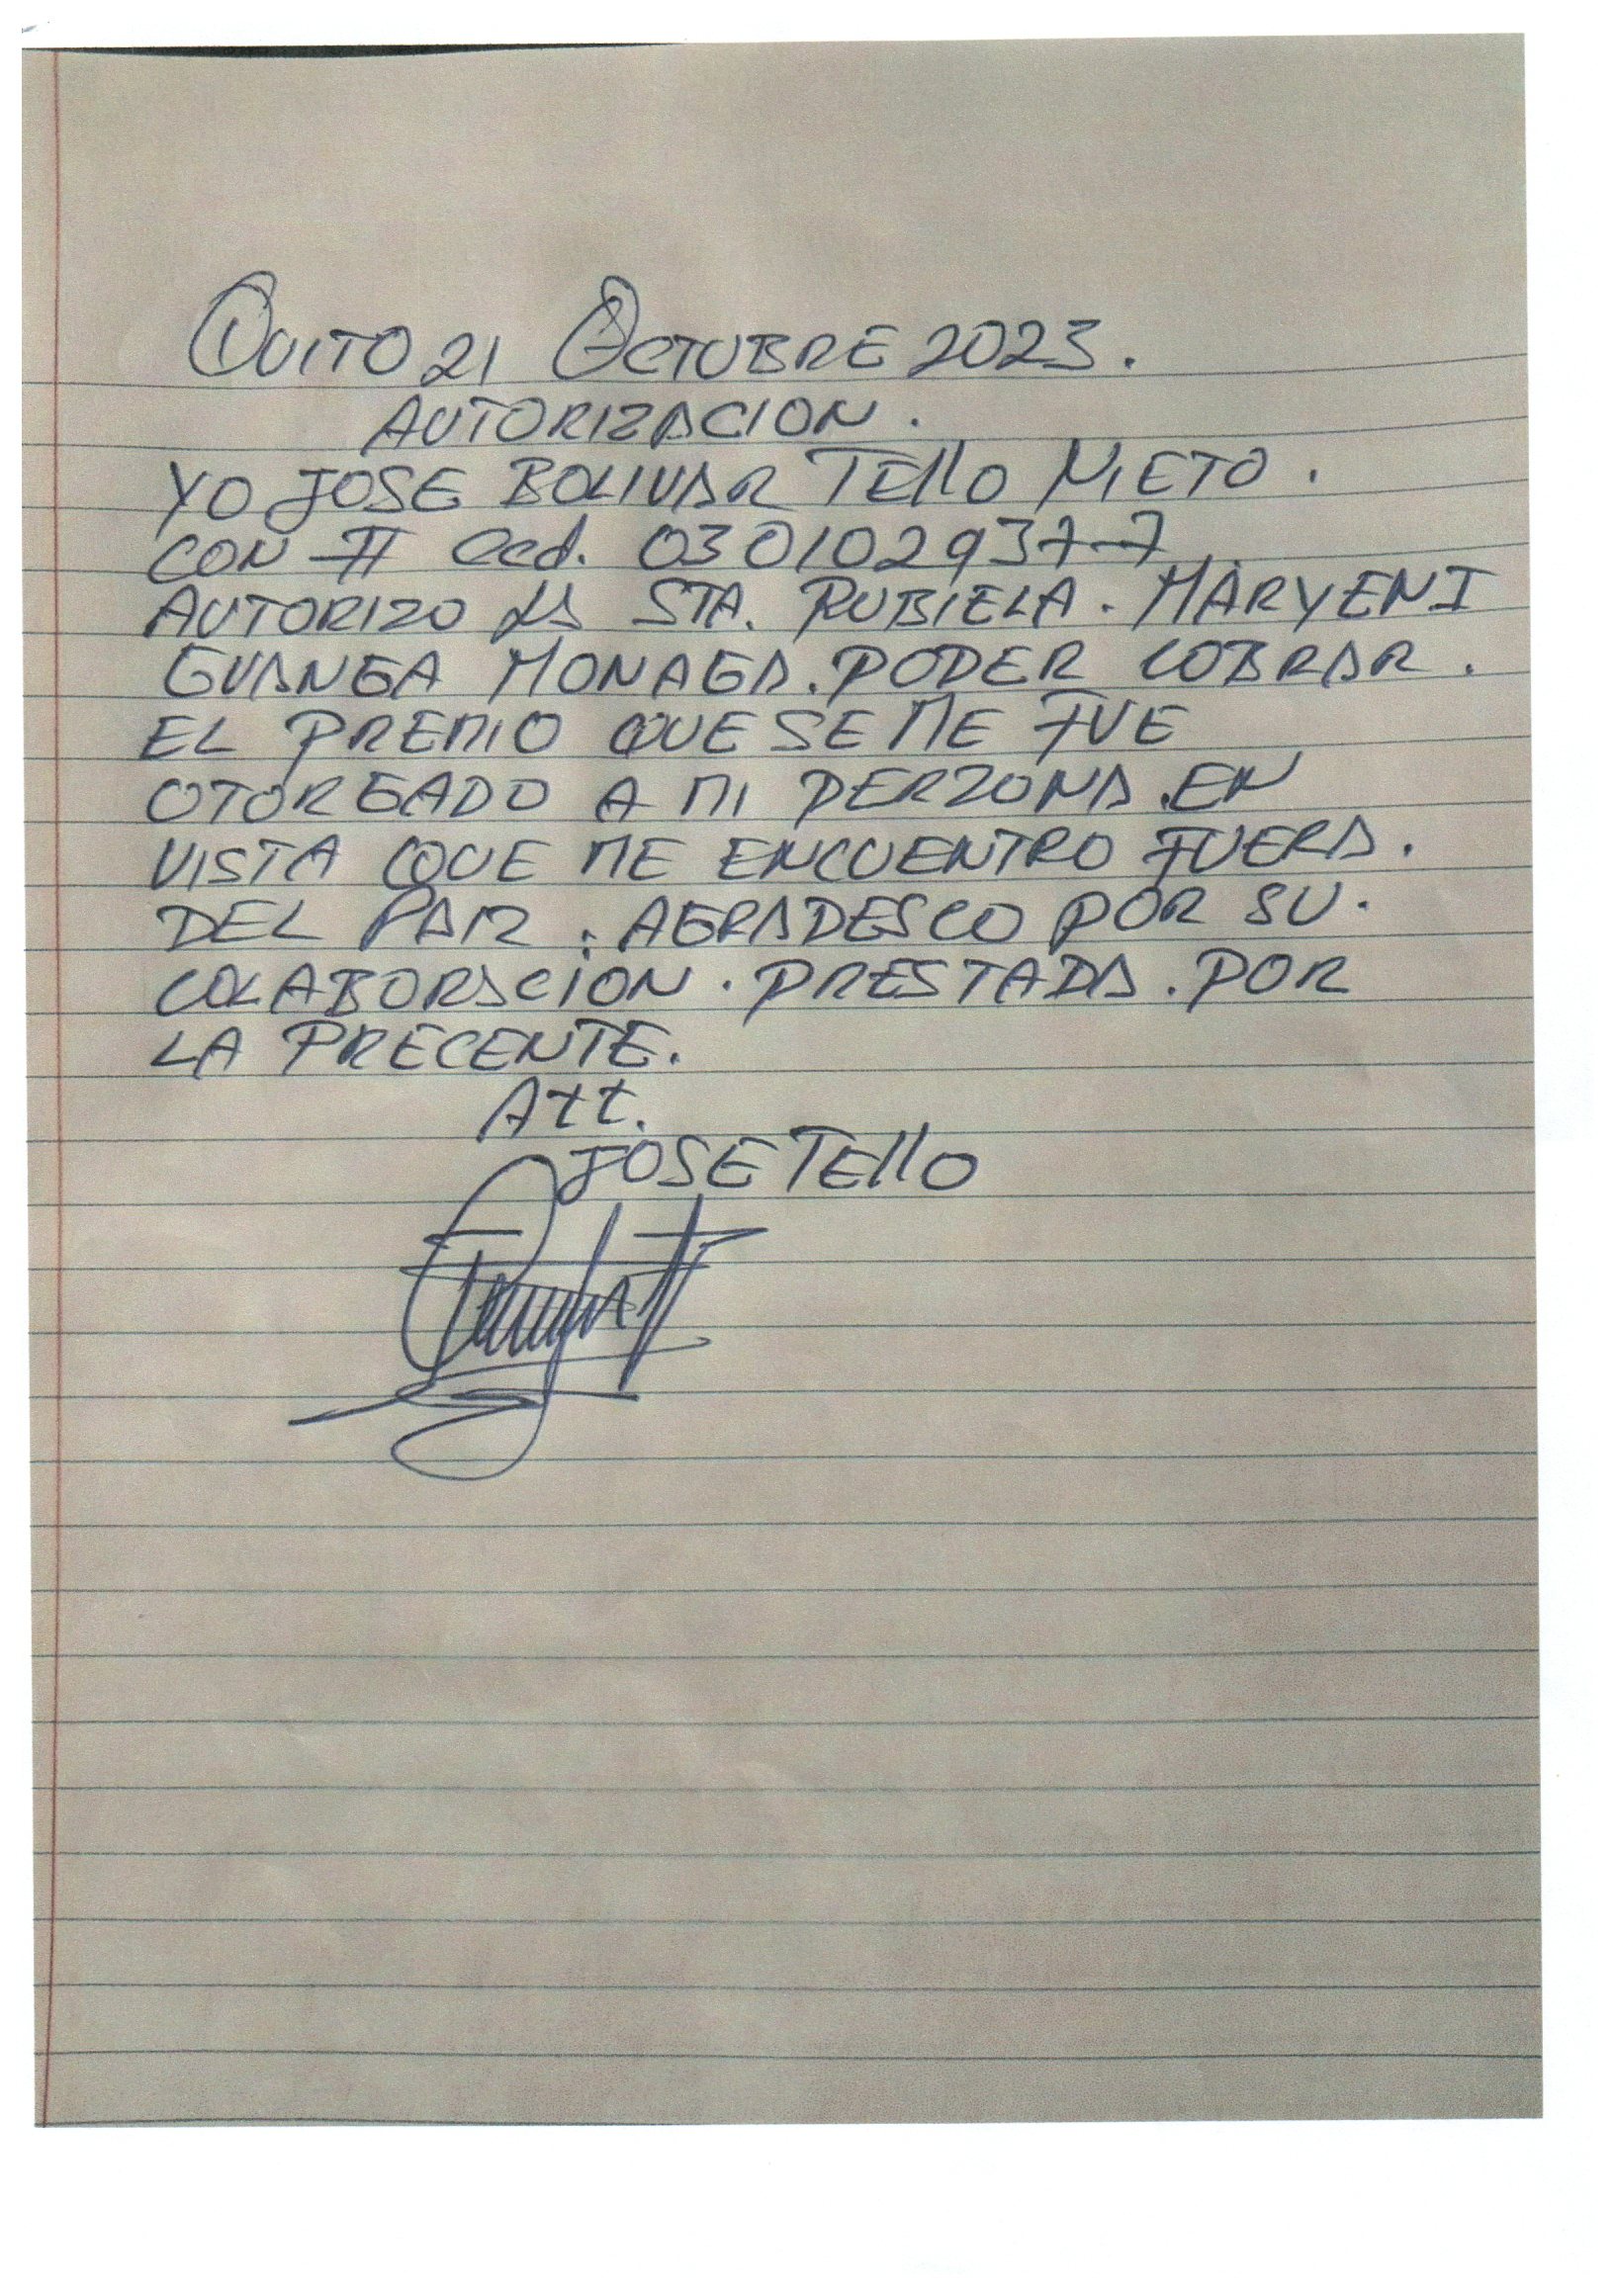 QUITO 21 OCTUBRE 2023.
AUTORIZACION.
YO JOSE BOLIVAR TEllO NIETO.
CON # Ced. 030102937-7
AUTORIZO LA STA. RUBIELA. MARYENI
GUANGA MONAGA. PODER COBRAR.
EL PREMIO QUE SE ME FUE
OTORGADO A MI PERZONA. EN
VISTA QUE ME ENCUENTRO FUERA.
DEL PAIZ. AGRADESCO POR SU.
COLABORACION. PRESTADA. POR
LA PRECENTE.
Att.
JOSE TEllO